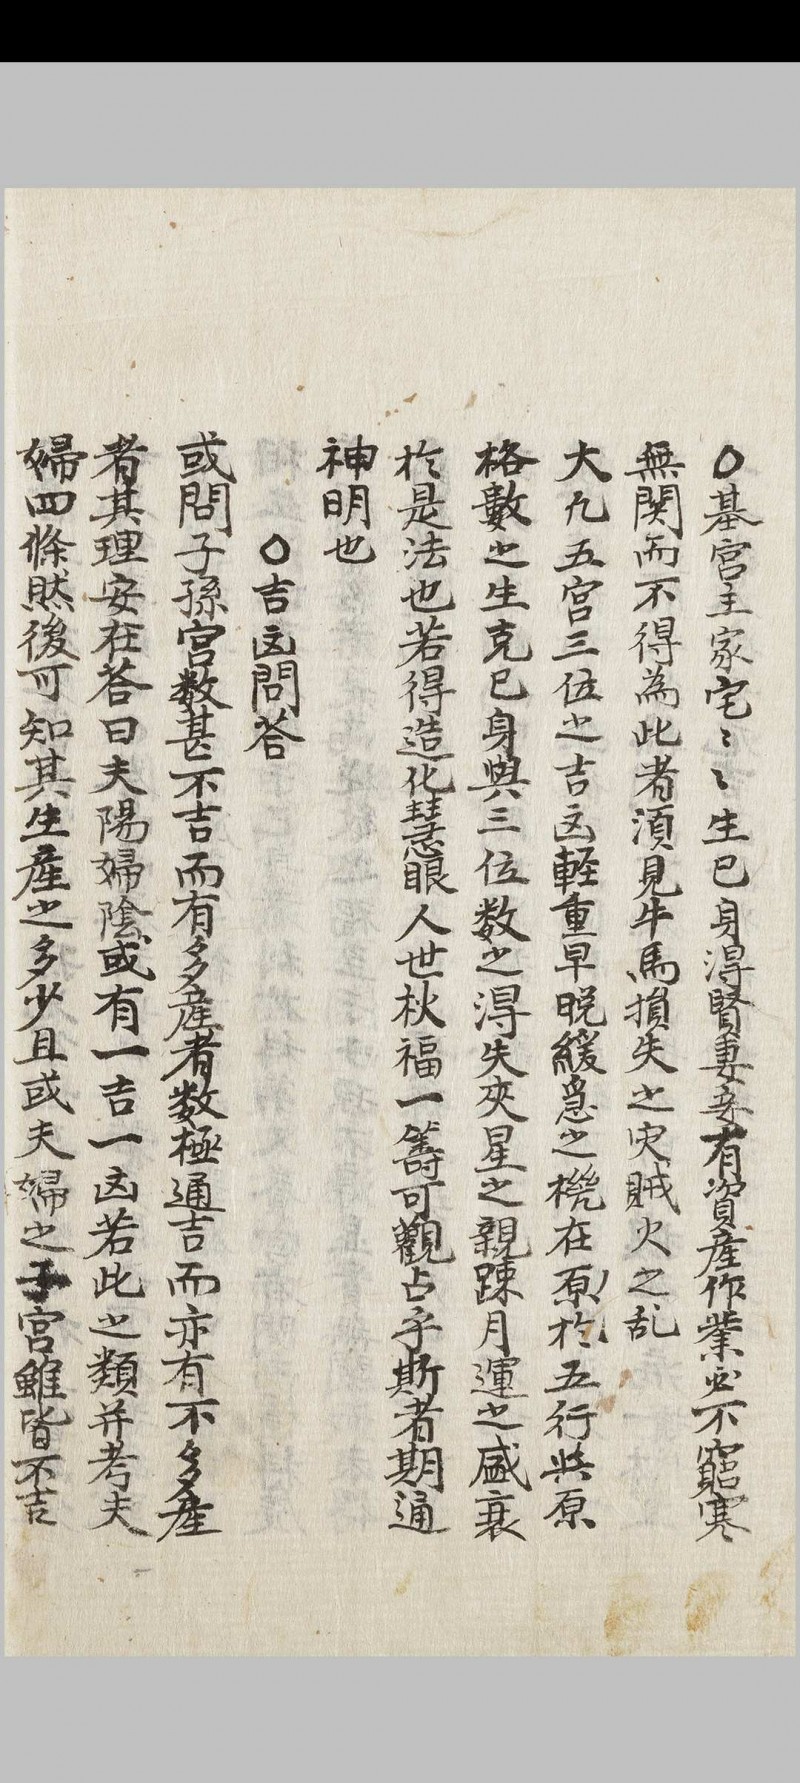 〇基宮主家宅〻〻生已身得賢妻妾有資産作業必不窮寒
無関而不得為此者須見牛馬損失之灾賊火之乱
大凡五宮三位之吉凶軽重早晩緩急之機在原於五行此原
格數之生克已身與三位数之得失夾星之親踈月運之盛衰
於是法也若得造化慧眼人世秋福一籌可觀占乎斯者期通
神明也
〇吉凶問答
或問子孫宮数甚不吉而有多産者数極通吉而亦有不多産
者其理安在答曰夫陽婦陰或有一吉一凶若此之類并考夫
婦四條然後可知其生産之多少且或夫婦之子宮雖皆不吉